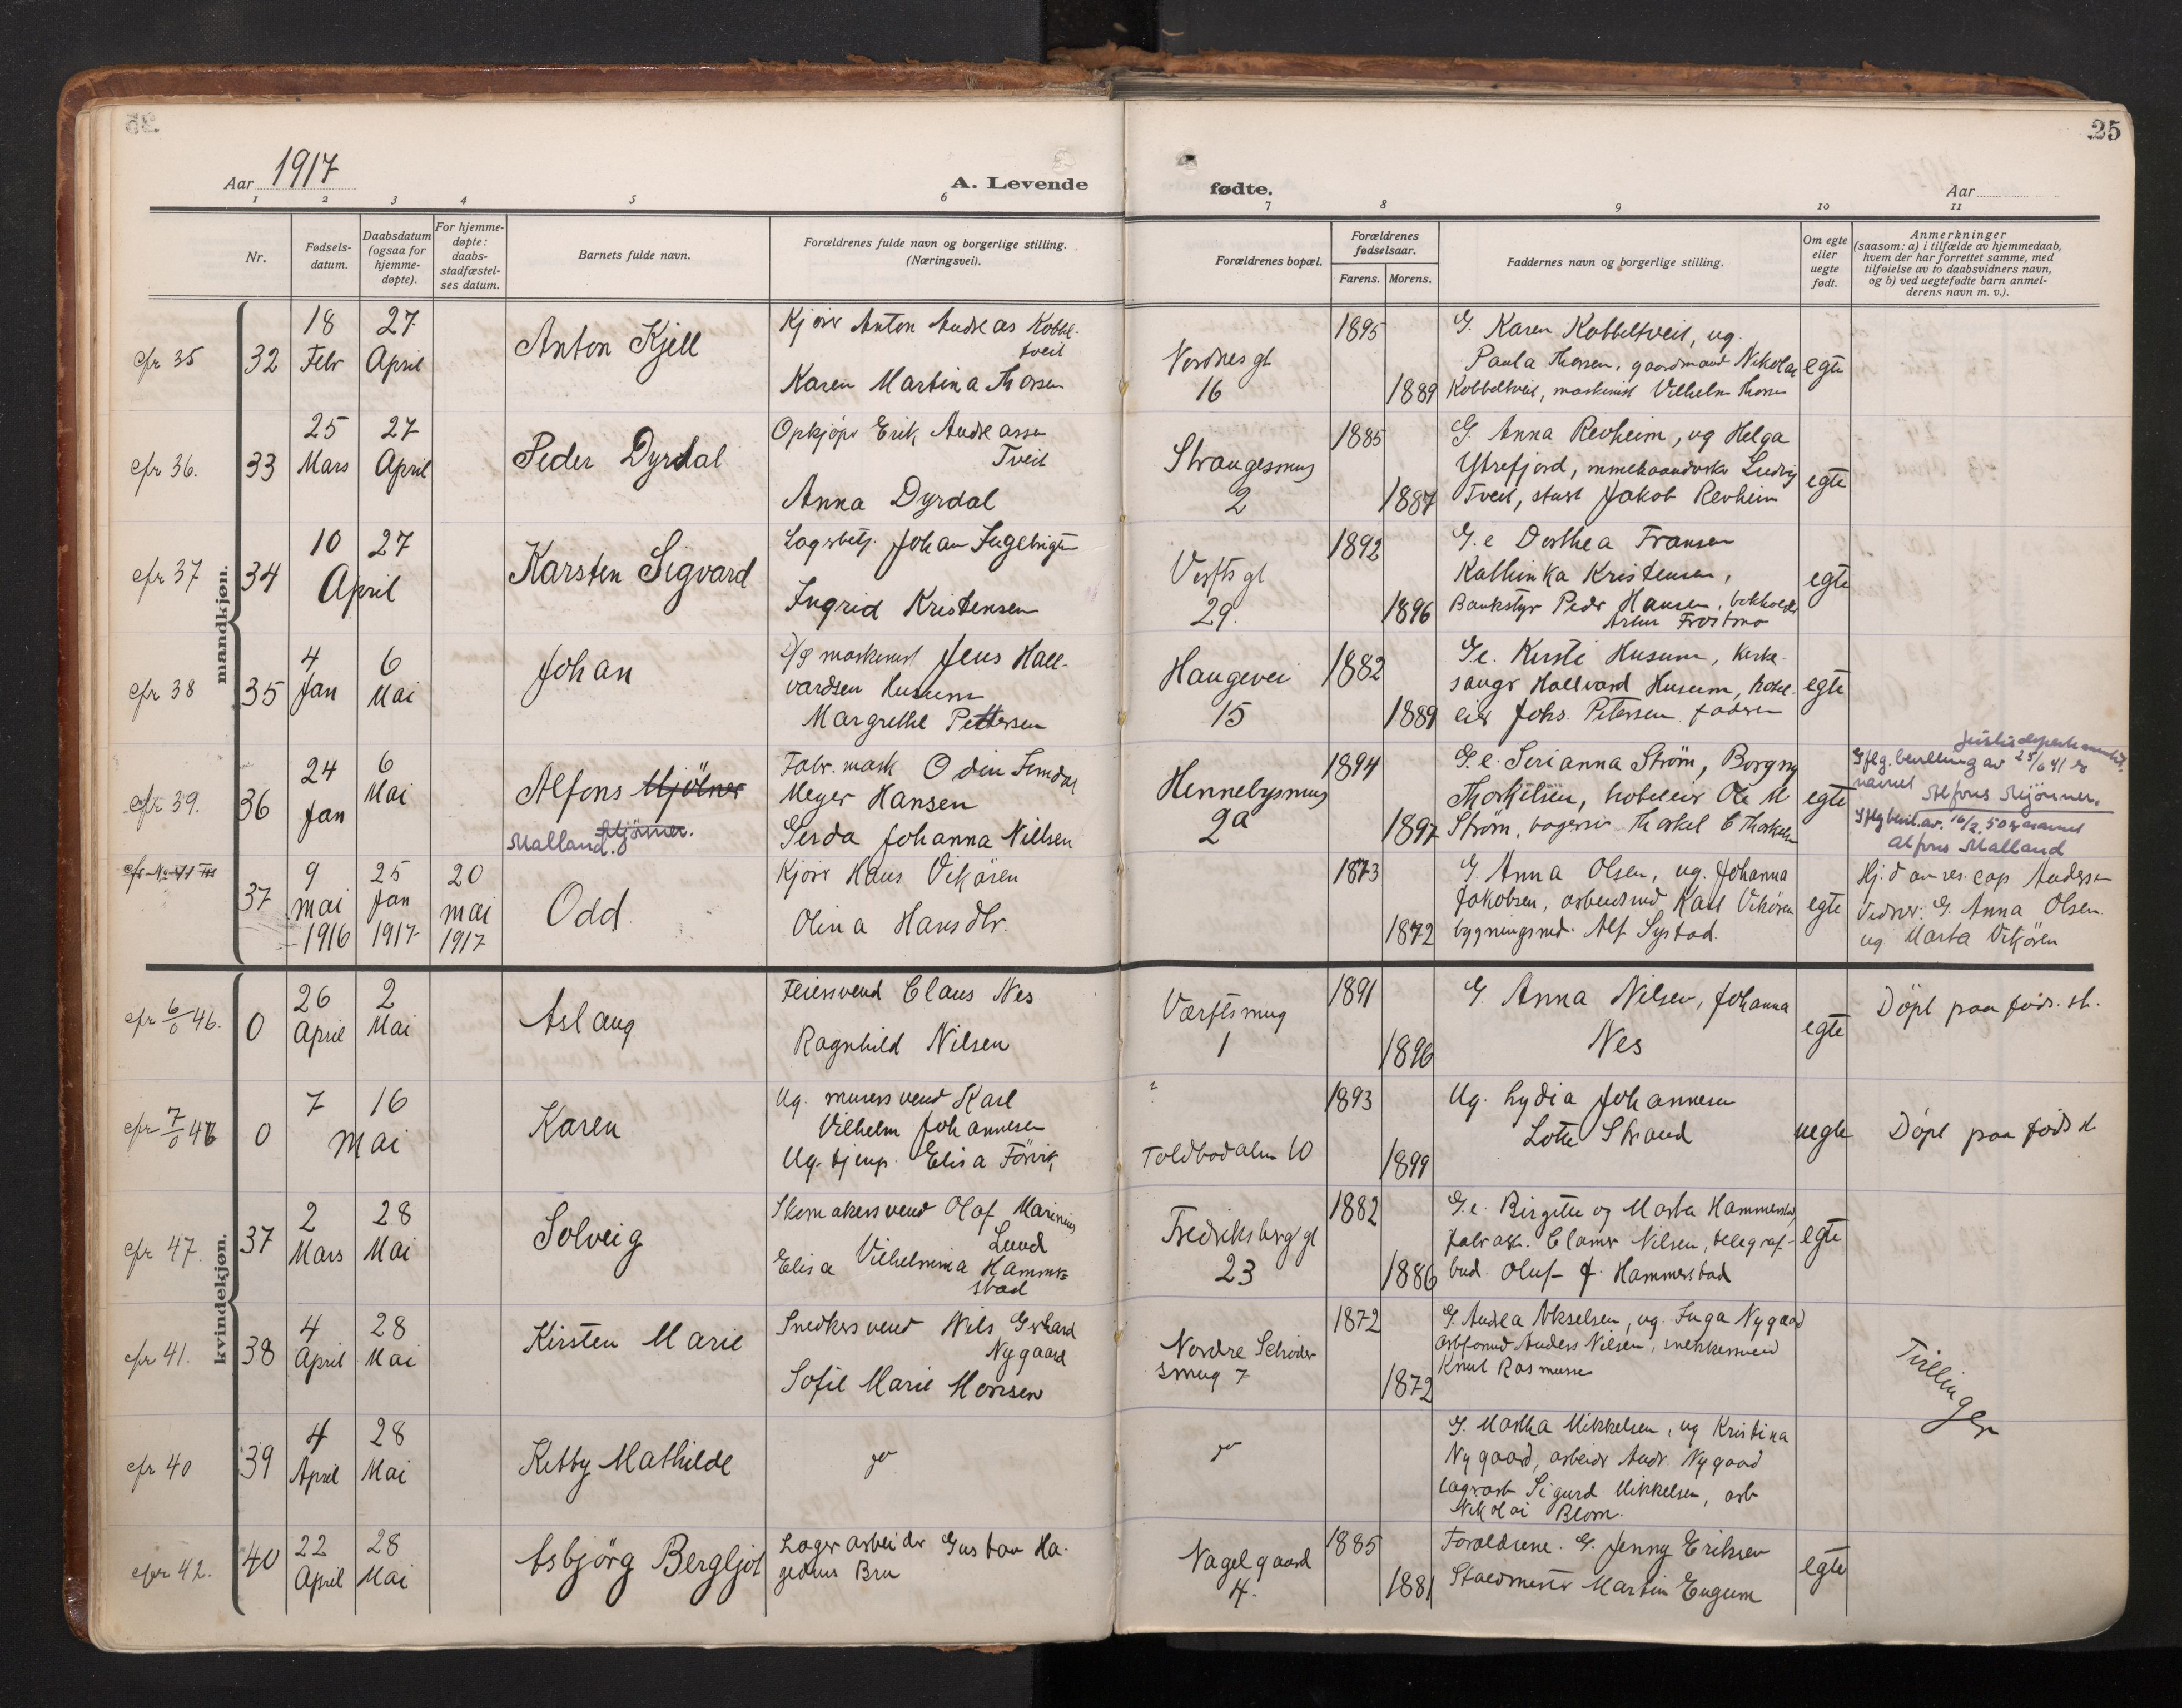 25
Aar 1917
A. Levende
fødte.
Aar
1 2 3 4 5 6 7 8 9 10 11
Nr.
Fødsels-
datum.
Daabsdatum
(ogsaa for
hjemme-
døpte).
For hjemme-
døpte:
daabs-
stadfæstel-
ses datum.
Barnets fulde navn.
Forældrenes fulde navn og borgerlige stilling.
(Næringsvei).
Forældrenes bopæl.
Forældrenes
fødselsaar.
Farens. Morens.
Faddernes navn og borgerlige stilling.
Om egte
eller
uegte
født.
Anmerkninger
(saasom: a) i tilfælde av hjemmedaab,
hvem der har forrettet samme, med
tilføielse av to daabsvidners navn,
og b) ved uegtefødte barn anmel-
derens navn m. v.).
mandkjøn.
cfr 35
32
18 Febr
27 April
Anton Kjell
Kjører Anton Andreas Kobbel-
tveit
Karen Martina Thorsen
Nordnesgt
16
1895
1889
G. Karen Kobbeltveit, ug.
Paula Thorsen, gaardmand Nikolai
Kobbeltveit, maskinist Vilhelm Thorsen
egte
cfr 36.
33
25 Mars
27 April
Peder Dyrdal
Opkjøper Erik Andreassen
Tveit
Anna Dyrdal
Strangesmug
2
1885
1887
G. Anna Revheim, ug Helga
Ytrefjord, Ludvig
Tveit, Jakob Revheim
egte
cfr 37
34
10
27
April
Karsten Sigvard
Lagerbetj. Johan Ingebrigtsen
Ingrid Kristensen
Verftsgt
29.
1892
1896
G.e Dorthea Fransen
Kathinka Kristensen,
Bankstyr Peder Hansen, bokholder
Artur Frostmo
egte
cfr 38
35
4 Jan
6 Mai
Johan
D/S maskinist Jens Hall-
vardsen Husum
Margrethe Pettersen
Haugevei
15
1882
1889
G.e. Kirsti Husum, kirke-
sanger Hallvard Husum, hotel-
eier Johs. Petersen. faderen
egte
cfr 39.
36
24 Jan
6 Mai
Alfons Mjölner
Mjönner.
Malland.
Fabr. mask Odin
Meyer Hansen
Gerda Johanna Nielsen
Hennebysmug
2a
1894
1897
G.e. Serianna Strøm, Borgny
Thorkelsen, hoteleier Ole M
Strøm, Thorkel C Thorkelsen
egte
Justisdepartementet.
Iflg. bevilling av 25/6 41 er
navnet
Alfons Mjønner.
Iflg bevil. av. 16/2.50 er navnet
Alfons Malland
37
9 mai 1916
25 Jan 1917
20 mai 1917
Odd
Kjører Hans Vikøren
Olina Hansdtr.
1873
1872
G. Anna Olsen, ug. Johanna
Jakobsen, arbeidsmd. Karl Vikøren
bygningsmd. Alf Systad.
egte
Hj. d av res. cap Andersen
Vidner: G. Anna Olsen
ug. Marta Vikøren
kvindekjøn.
cfr 6/0 46.
0
26 April
2 Mai
Aslaug
Feiersvend Claus Nes
Ragnhild Nilsen
Værftsmug
1
1891
1896
G. Anna Nilsen, Johanna
Nes
egte
Døpt paa føds. st.
cfr 7/0 46
0
7
16
Mai
Karen
Ug. murersvend Karl
Vilhelm Johannesen
Ug. tjenp. Elisa Førvik
Toldbodalm 10
1893
1899
Ug. Lydia Johannesen
Lotte Strand
uegte
Døpt paa føds st
cfr 47.
37
2 Mars
28 Mai
Solveig
Skomakersvend Olaf Marinius
Lund
Elisa Vilhelmina Hammer-
stad
Fredriksberggt
23
1882
1886
G.e. Birgitte og Marta Hammerstad,
fabrarb. Clamer Nilsen, telegraf-
bud Oluf J. Hammerstad
egte
cfr 41.
38
4 April
28 Mai
Kirsten Marie
Snedkersvend Nils Gerhard
Nygaard
Sofie Marie Monsen
Nordre Schrøder
smug 7
1872
1872
G. Andrea Akselsen, ug. Inga Nygaard
arbformd Anders Nilsen, snekkersvend
Knut Rasmussen
Tvillinger
cfr 40
39
4 April
28 Mai
Ketty Mathilde
G. Martha Mikkelsen, ug Kristina
Nygaard, arbeider Andr. Nygaard
lagerarb Sigurd Mikkelsen, arb
Nikolai Blom.
cfr 42.
40
22 April
28 Mai
Asbjörg Bergljot
Lagerarbeider Gustav Ha-
Bru
Nagelgaard
4.
1885
1881
Forældrene. G. Jenny Eriksen
Staldmester Martin Engum
egte